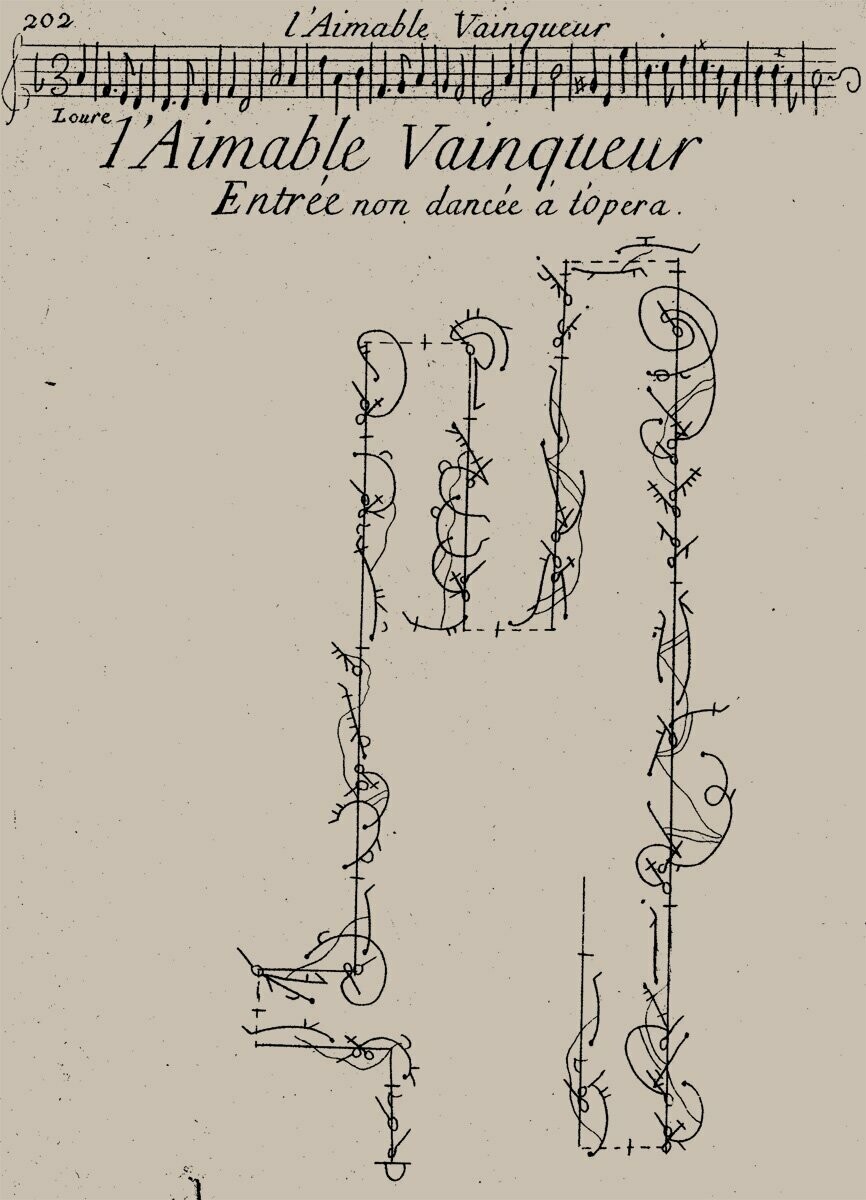 202
l'Aimable Vainqueur
3
Loure
l'Aimable Vainqueur
Entrée non dancée à l'opera.